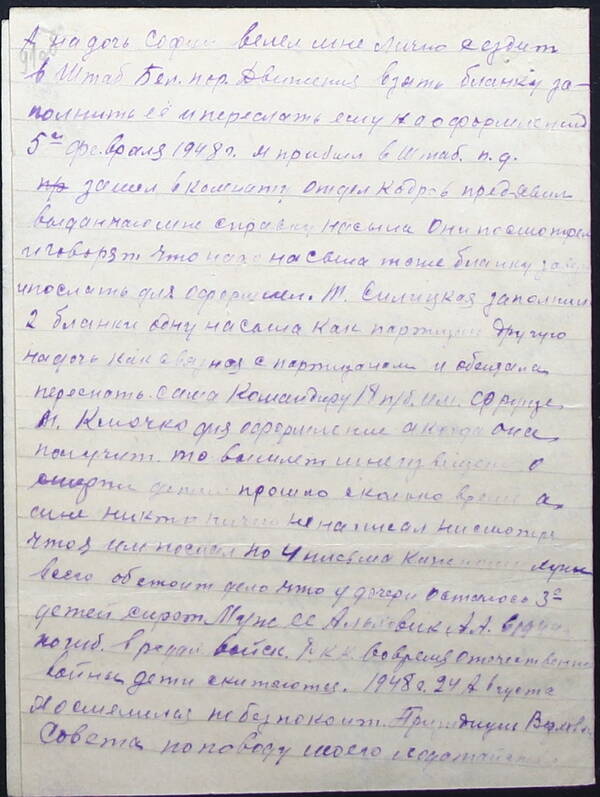 А на дочь Софию велел мне лично ездить
в Штаб Бел. пар. Движения взять бланку за-
полнить её и переслать ему на оформление
5го февраля 1948 г. я прибыл в Штаб. п. д.
пр зашел в комнату отдел Кадров предявил
выданную мне справку на сына они посмотрели
и говорят что надо на сына тоже бланку
и послать для оформлен. Т. Силицкая заполнила
2 бланки одну на сына как партизан другую
на дочь как связная с партизанам и обещала
переслать сама Командиру 18 п/б. им. Фрунзе
т. Клочко для оформление а когда она
получит то вышлет мне извещение о
смерти детей прошло сколько время а
мне никто ничего не написал несмотря
что я им послал по 4 письма
всего обстоит дело что у дочери осталось 3е
детей сирот Муж её А.А.
погиб. в рядах войск. Р.К.К. вовремя отечественной
войны дети скитаются. 1948 г. 24 Августа
Я осмелился побезпокоит. Президиум Верховн.
Совета по поводу моего ходатайства